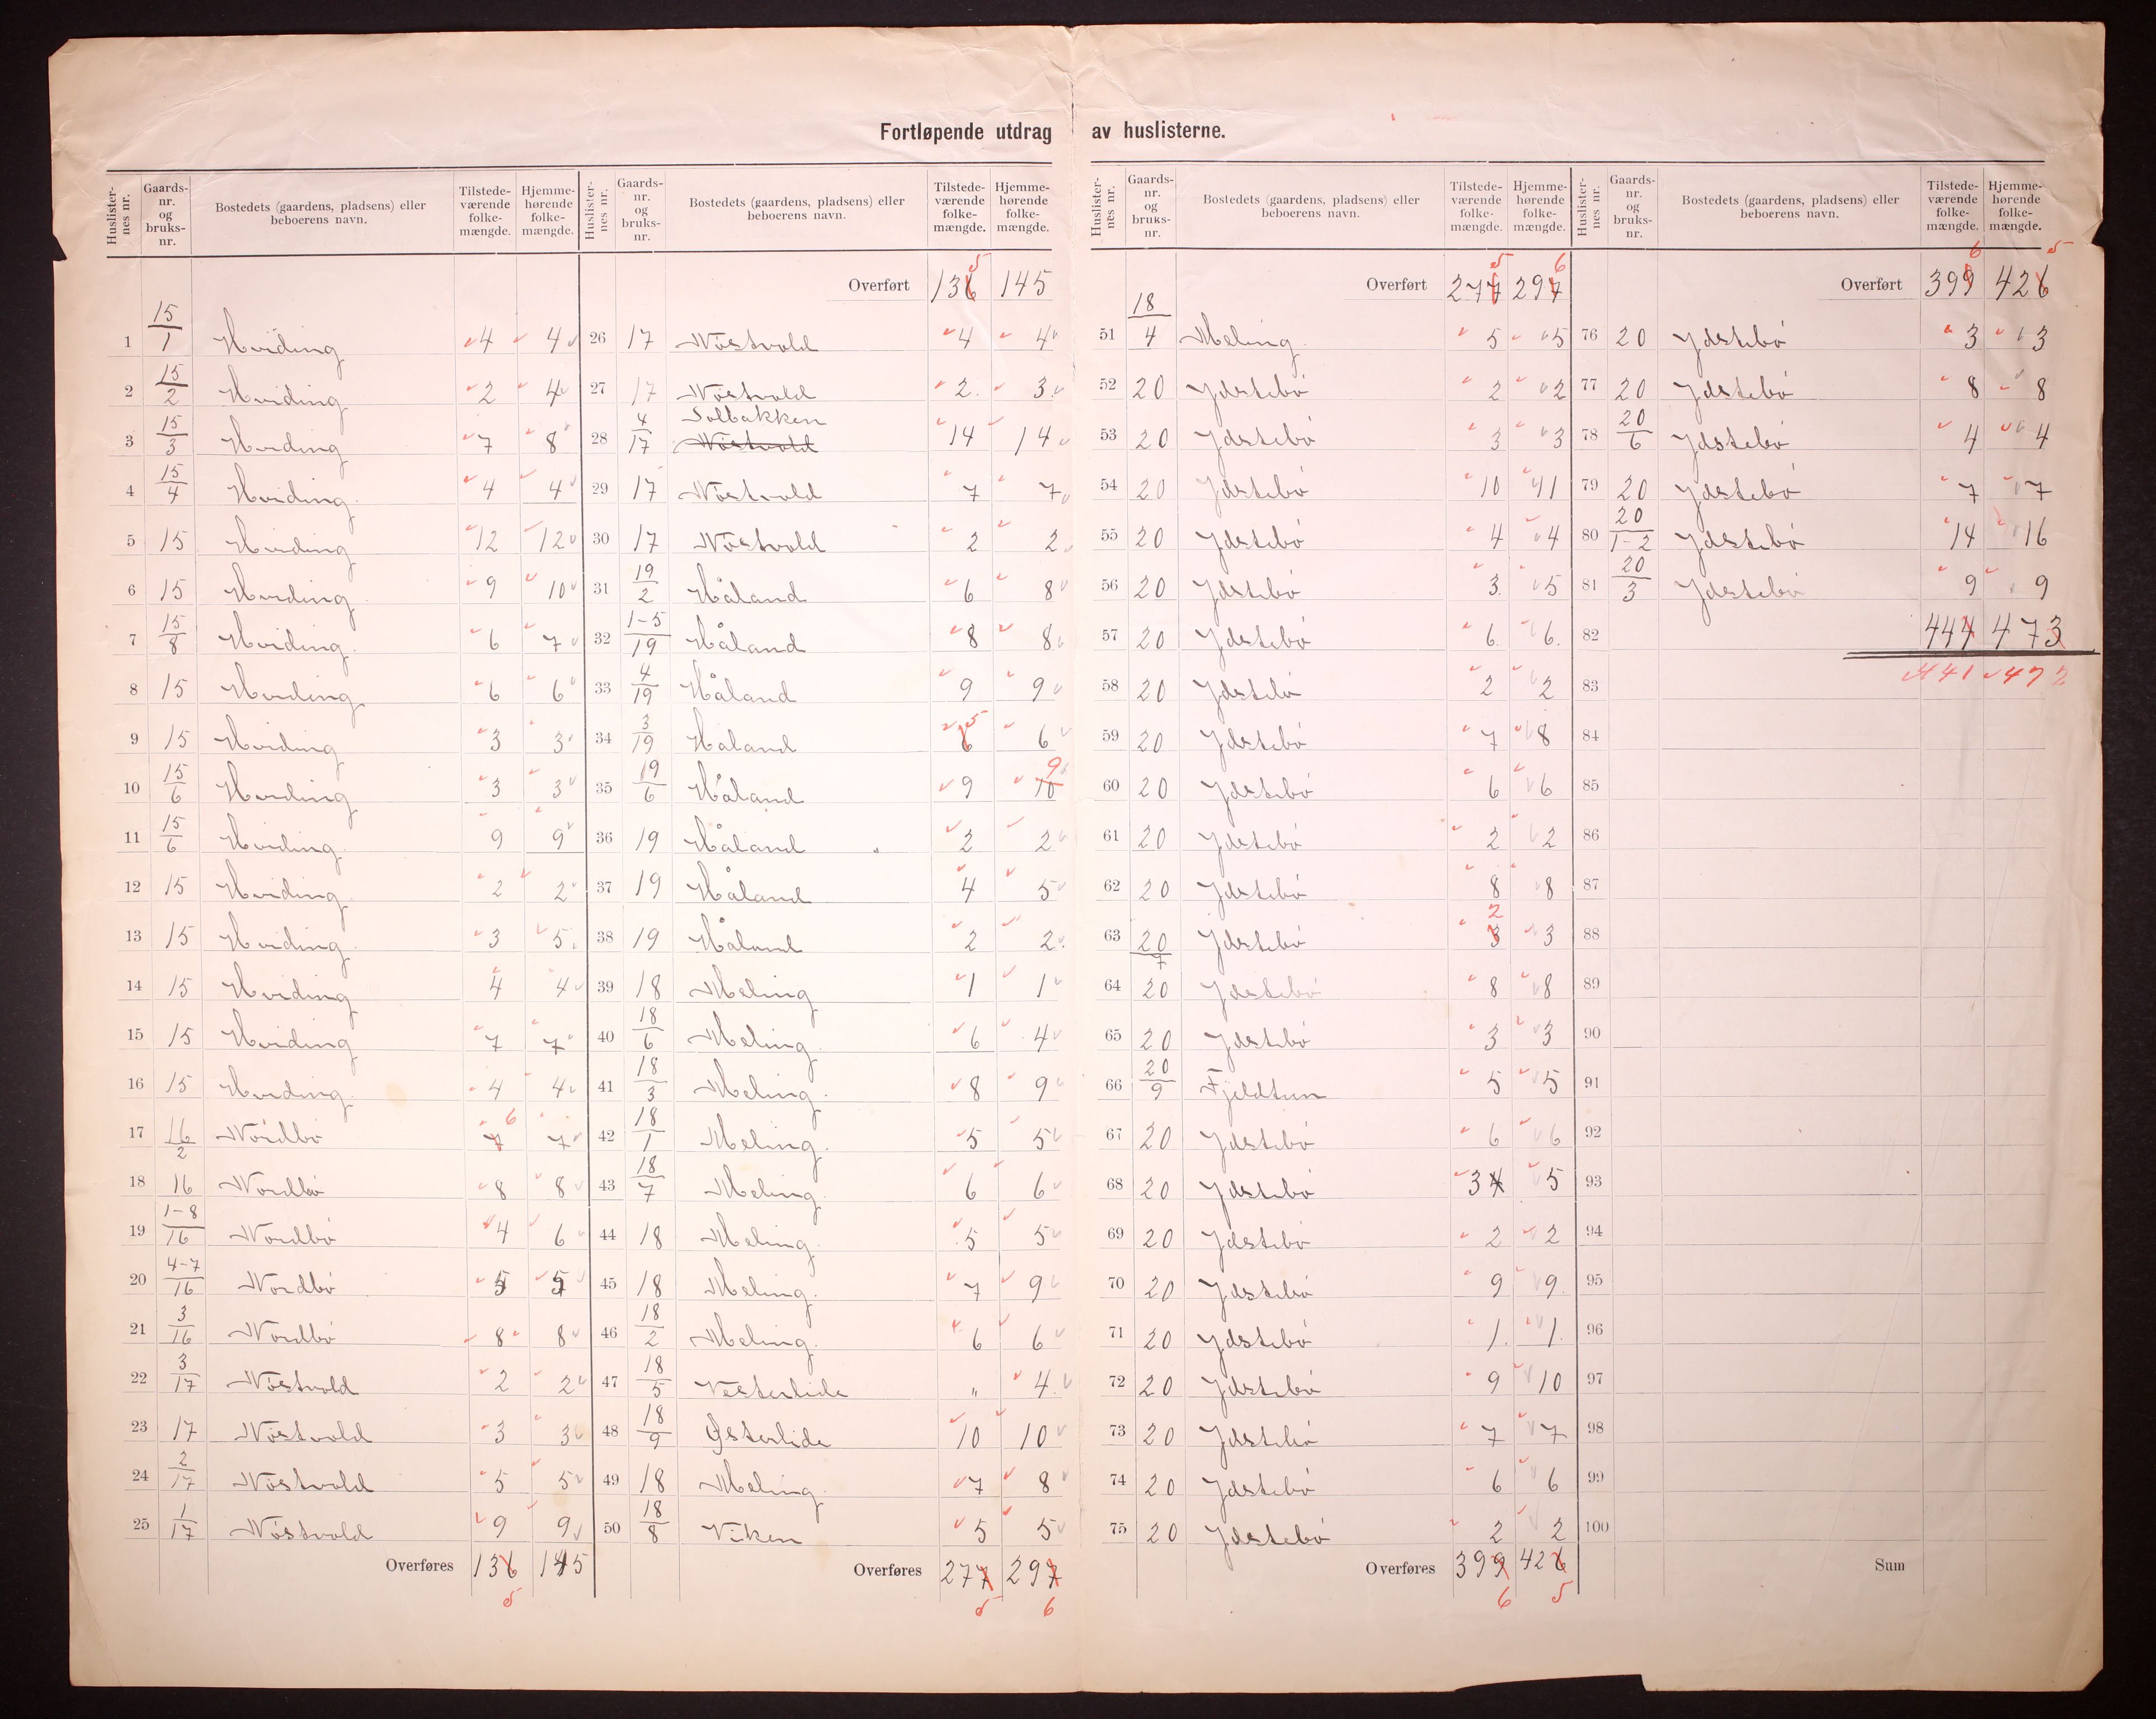 Fortløpende utdrag av huslisterne.
Huslister-nes nr. Gaards-nr. og bruks-nr. Bostedets (gaardens, pladsens) eller beboerens navn. Tilstede-værende folke-mængde. Hjemme-hørende folke-mængde.
1 15/1 Hviding 4 4
2 15/2 Hviding 2 4
3 15/3 Hviding 7 8
4 15/4 Hviding. 4 4
5 15 Hviding 12 12
6 15 Hviding 9 10
7 15/8 Hviding. 6 7
8 15 Hviding 6 6
9 15 Hviding 3 3
10 15/6 Hviding 3 3
11 15/6 Hviding 9 9
12 15 Hviding 2 2
13 15 Hviding 3 5
14 15 Hviding 4 4
15 15 Hviding 7 7
16 15 Hviding 4 4
17 16/2 Nordbø 7 6 7
18 16 Nordbø 8 8
19 1-8/16 Nordbø 4 6
20 4-7/16 Nordbø 5 5
21 3/16 Nordbø 8 8
22 3/17 Nöstvold 2 2
23 17 Nöstvold 3 3
24 2/17 Nöstvold 5 5
25 1/17 Nöstvold 9 9
Overføres 136 5 145
Huslister-nes nr. Gaards-nr. og bruks-nr. Bostedets (gaardens, pladsens) eller beboerens navn. Tilstede-værende folke-mængde. Hjemme-hørende folke-mængde.
Overført 136 5 145
26 17 Nöstvold 4 4
27 17 Nöstvold 2. 3.
28 4/17 Solbakken Nöstvold 14 14
29 17 Nöstvold 7 7
30 17 Nöstvold 2 2
31 19/2 Håland 6 8
32 1-5/19 Håland 8 8
33 4/19 Håland 9 9
34 3/19 Håland 6 5 6
35 19/6 Håland 9 10 9
36 19 Håland 2 2
37 19 Håland 4 5
38 19 Håland 2 2.
39 18 Meling 1 1
40 18/6 Meling. 6 4
41 18/3 Meling. 8 9
42 18/1 Meling. 5 5
43 18/7 Meling. 6 6
44 18 Meling. 5 5
45 18 Meling. 7 9
46 18/2 Meling. 6 6
47 18/5 Vesterlide " 4.
48 18/9 Østerlide 10 10
49 18 Meling. 7 8
50 18/8 Viken 5 5
Overføres 277 5 297 6
Huslister-nes nr. Gaards-nr. og bruks-nr. Bostedets (gaardens, pladsens) eller beboerens navn. Tilstede-værende folke-mængde. Hjemme-hørende folke-mængde.
Overført 277 5 297 6
51 18/4 Meling. 5 5
52 20 Ydstebö 2 2
53 20 Ydstebö 3 3
54 20 Ydstebö 10 11
55 20 Ydstebö 4 4
56 20 Ydstebö 3. 5
57 20 Ydstebö 6. 6.
58 20 Ydstebö 2 2
59 20 Ydstebö 7 8
60 20 Ydstebö 6 6
61 20 Ydstebö 2 2
62 20 Ydstebö 8 8
63 20/7 Ydstebö 3 2 3
64 20 Ydstebö 8 8
65 20 Ydstebö 3 3
66 20/9 Fjeldtun 5 5
67 20 Ydstebö 6 6
68 20 Ydstebö 3 4 5
69 20 Ydstebö 2 2
70 20 Ydstebö 9 9.
71 20 Ydstebö 1. 1.
72 20 Ydstebö 9 10
73 20 Ydstebö 7 7
74 20 Ydstebö 6 6
75 20 Ydstebö 2 2
Overføres 399 6 426 5
Huslister-nes nr. Gaards-nr. og bruks-nr. Bostedets (gaardens, pladsens) eller beboerens navn. Tilstede-værende folke-mængde. Hjemme-hørende folke-mængde.
Overført 399 6 426 5
76 20 Ydstebö 3 3
77 20 Ydstebö 8 8
78 20/6 Ydstebö 4 4
79 20 Ydstebö 7 7
80 20/1-2 Ydstebö 14 16
81 20/3 Ydstebö 9 9
82 444 473
83 441 472
84
85
86
87
88
89
90
91
92
93
94
95
96
97
98
99
100
Sum